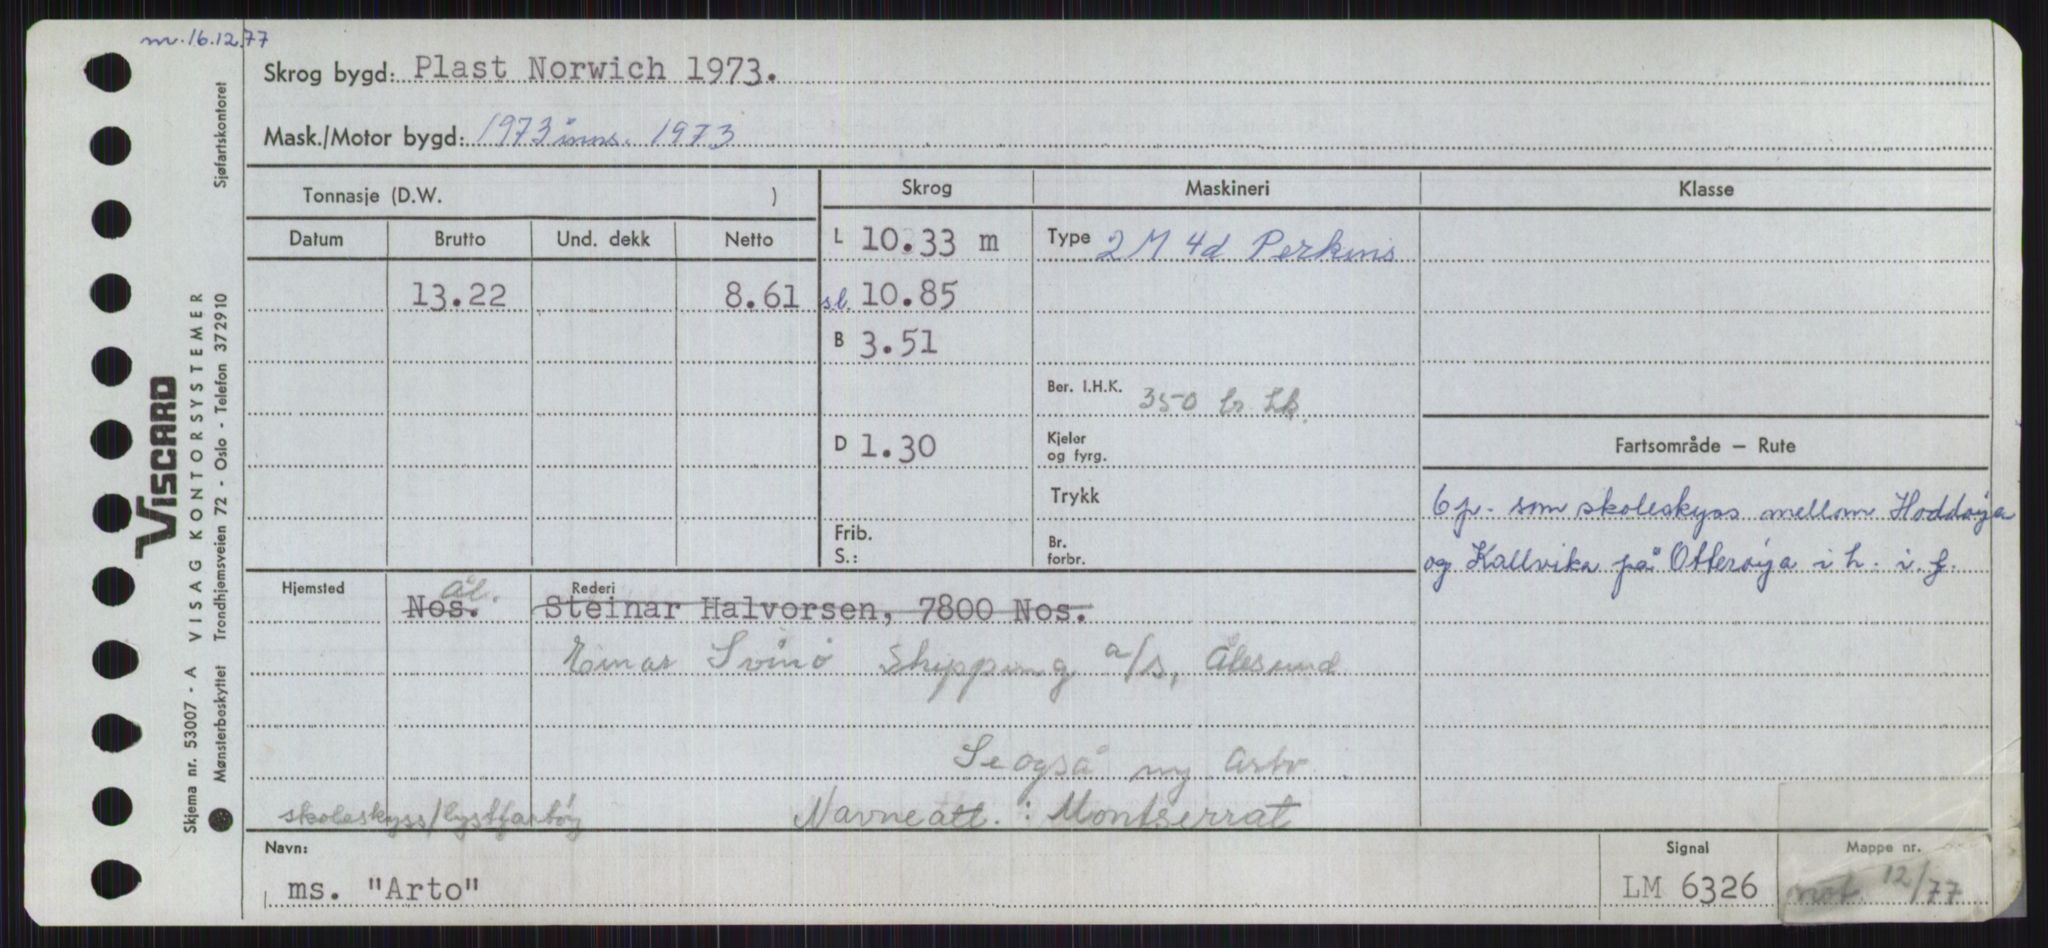 m. 16.12.77
Skrog bygd: Plast Norwich 1973.
Mask./Motor bygd: 1973 inns. 1973
Tonnasje (D.W. )
Skrog
Maskineri
Klasse
Datum Brutto Und. dekk Netto
L 10.33 m
Type 2 M 4d Perkins
13.22 8.61
s.l. 10.85
B 3.51
Ber. I.H.K. 350 br. hk.
D 1.30
Kjeler
og fyrg.
Fartsområde – Rute
Trykk
6 p. som skoleskyss mellom Hoddøya
og Kallvika på Otterøya i h. i. f.
Frib.
S.:
Br.
forbr.
Hjemsted
Ål.
Nos.
Rederi
Steinar Halvorsen, 7800 Nos.
Einar Svinø Shipping a/s, Ålesund
Se også ny Arto
skoleskyss/lystfartøy
Navneatt. : Montserrat
Navn:
ms. "Arto"
Signal
LM 6326
Mappe nr.
mot. 12/77
Sjøfartskontoret
VISCARD
VISAG KONTORSYSTEMER
Skjema nr. 53007 - A
Mønsterbeskyttet Trondhjemsveien 72 - Oslo - Telefon 372910